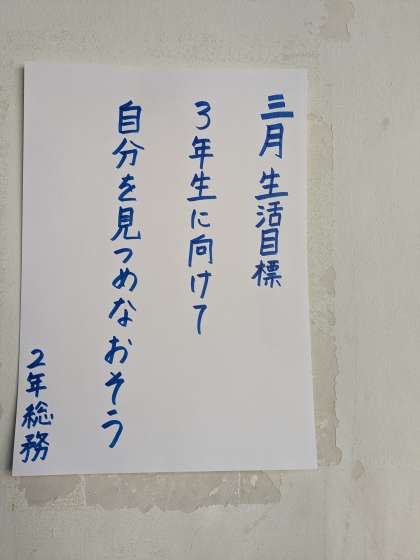 三月生活目標
3年生に向けて
自分を見つめなおそう
2年総務